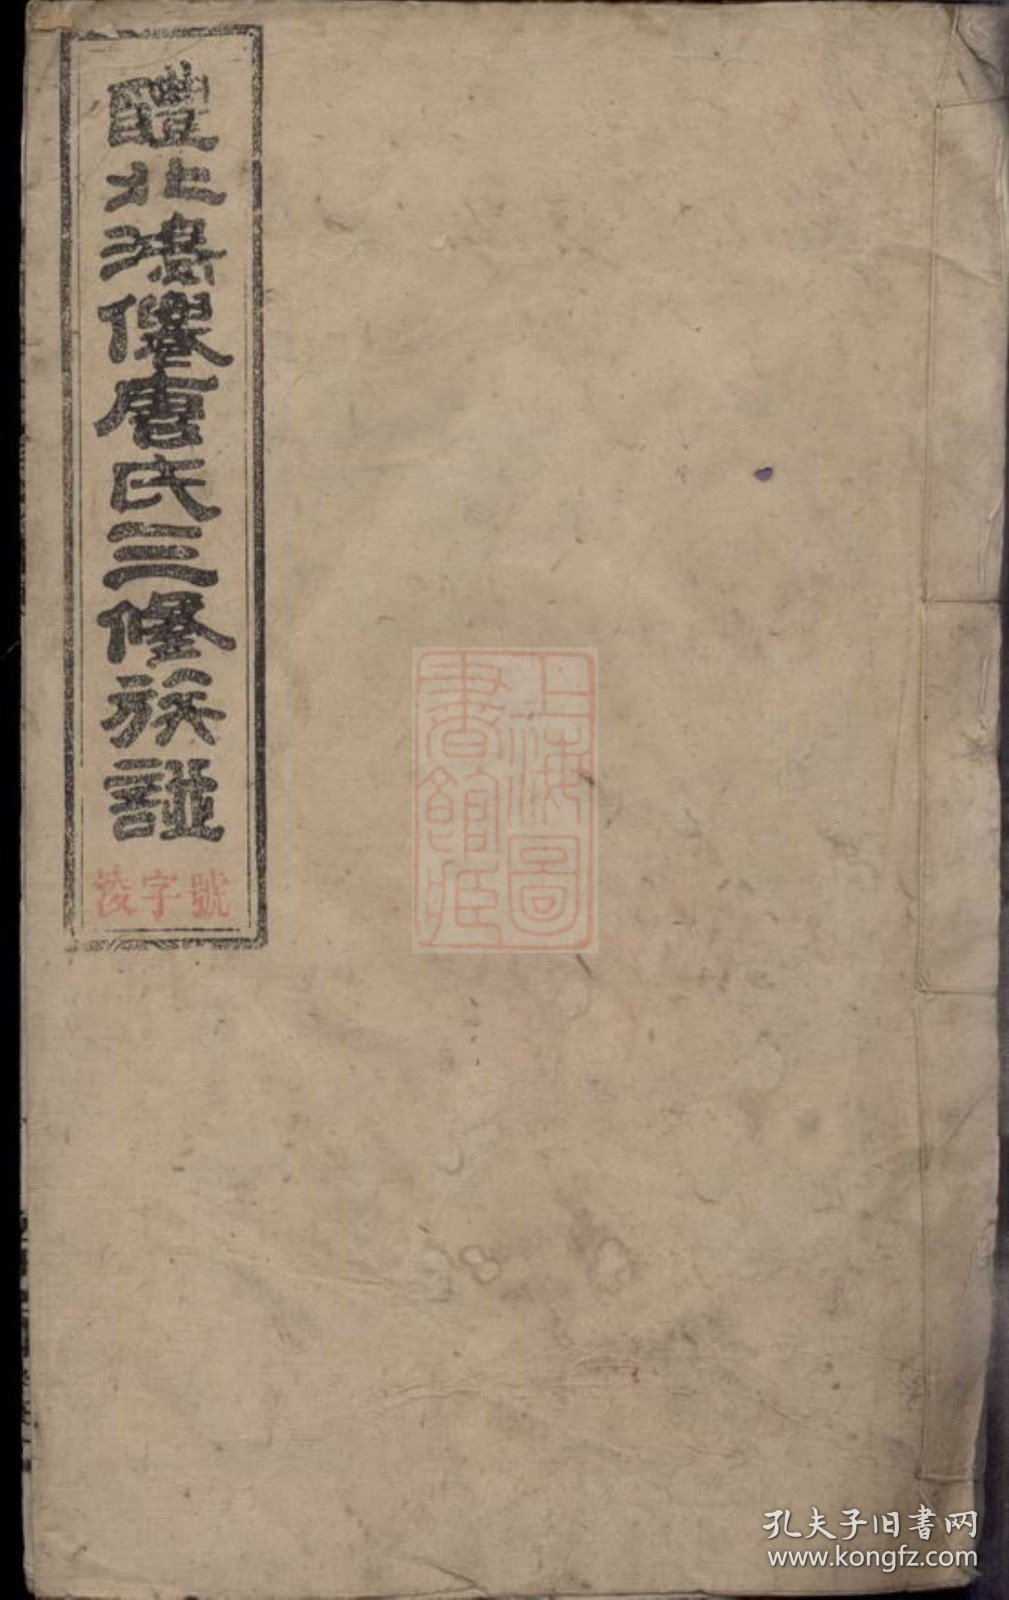 醴北僊唐氏三修族譜
字號
上海圖
書館藏
孔夫子旧书网
www.kongfz.com